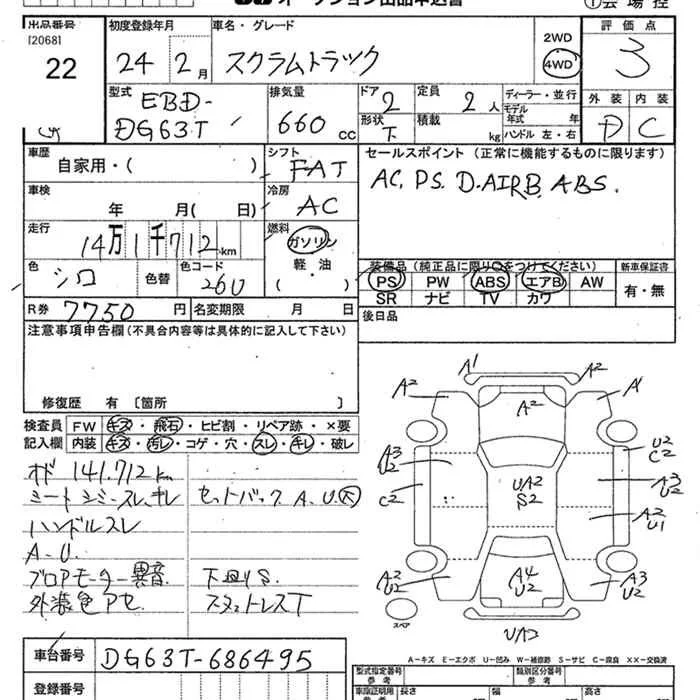 オークション出品申込書
①会場控
出品番号 初度登録年月 車名・グレード 評価点
[2068]
22
24 2月 スクラムトラック 2WD 4WD 3
型式 排気量 ドア 定員 ディーラー・並行 外装 内装
EBD-
DG63T 660cc 2 2人 モデル年式 年
形状 下 積載 kg ハンドル 左・右 D C
車歴 シフト セールスポイント(正常に機能するものに限ります)
自家用・( ) FAT AC, PS. D.AIRB, ABS.
車検 冷房
年 月( 日) AC
走行 燃料
14万1千712km ガソリン
軽・油
( ・ )
色 色替 色コード
シロ 26U
装備品(純正品に限り○をつけてください) 新車保証書
PS PW ABS エアB AW 有・無
SR ナビ TV カワ
R券 7750円 名変期限 月 日 後日品
注意事項申告欄(不具合内容等は具体的に記入して下さい)
修復歴 有 〔箇所
検査員 FW キズ・飛石・ヒビ割・リペア跡・×要
記入欄 内装 キズ・汚レ・コゲ・穴・スレ・キレ・破レ
オド 141,712km
シートシミ・スレ、キレ セットバック A.U大
ハンドルスレ
A-U
ブロアモーター異音 下廻りS
外装色アセ スタットレスT
A1 A2
A2 A2 A1
A3 U2 U2 C2
UA2 S2 A3 U2
C2 A2 U1
A2 U2 A4 U2 A3 U2
スペア
UA2
車台番号 DG63T-686495
登録番号
A-キズ E-エクボ U-凹み W-補修跡 S-サビ C-腐食 XX-交換済
型式指定番号 類別区分番号
車庫証明用参考 長さ 幅 高さ